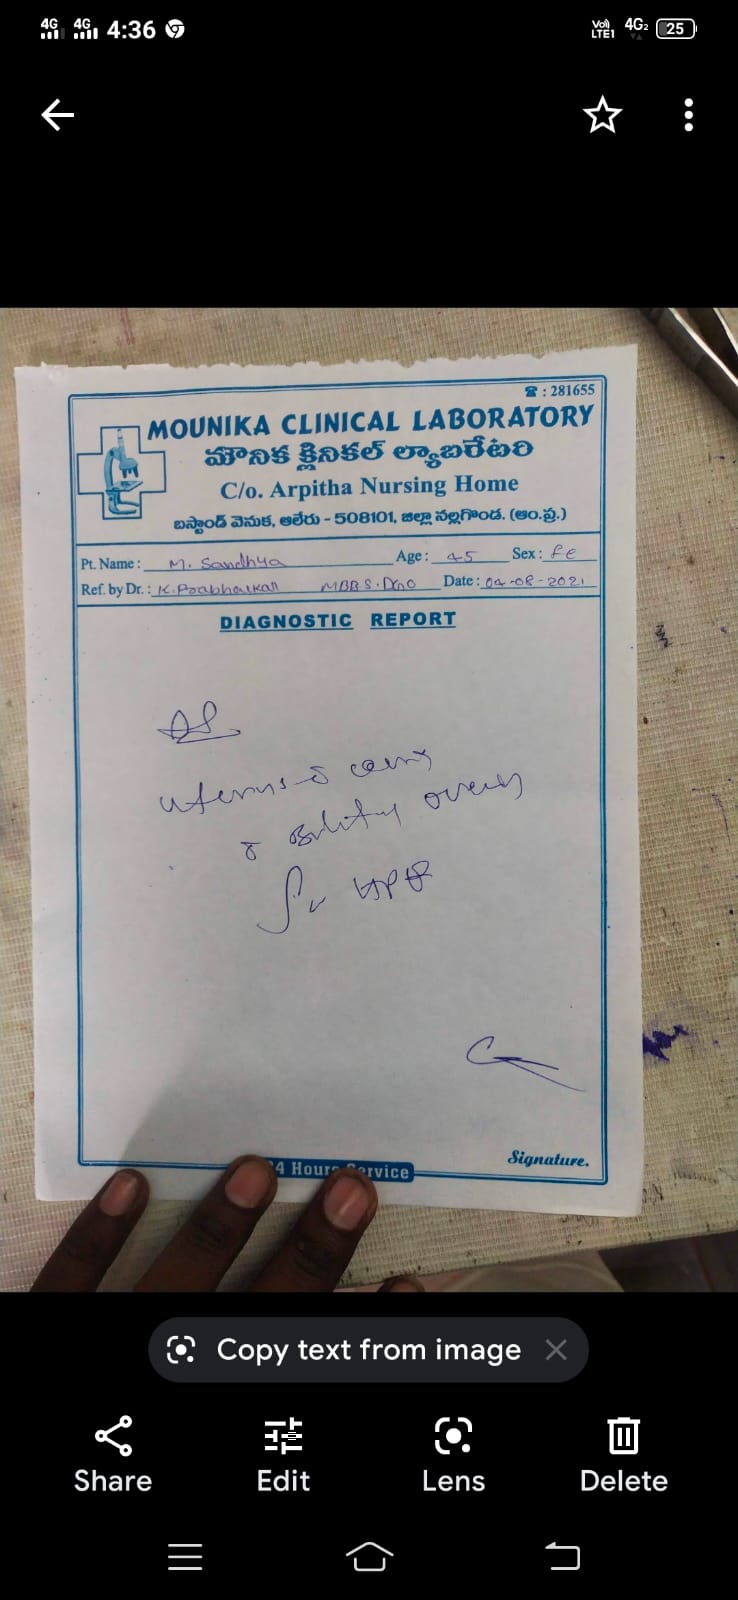 4G 4G 4:36 Vo) LTE1 4G2 25
☎ : 281655
MOUNIKA CLINICAL LABORATORY
మౌనిక క్లినికల్ ల్యాబరేటరి
C/o. Arpitha Nursing Home
బస్టాండ్ వెనుక, ఆలేరు - 508101, జిల్లా నల్లగొండ. (ఆం.ప్ర.)
Pt. Name : M. Sandhya Age : 45 Sex : fe
Ref. by Dr. : K. Prabhakar MBBS. DGO Date : 04-08-2021
DIAGNOSTIC REPORT
uterus c̄ cervix
c̄ ovaries
HPE
Signature.
24 Hours Service
Copy text from image
Share Edit Lens Delete